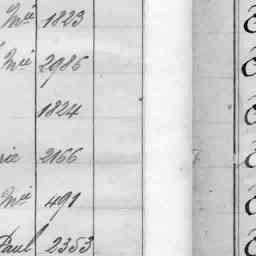 Mie 1823
Mie 2986
1824
rie 2166
Mie 491
Paul 2353